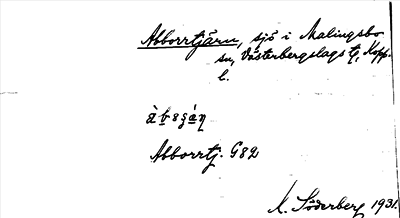 Abborrtjärn, sjö i Malingsbo
sn, Västerbergslags tg, Kopp.
l.
Abborrtj. G82
K. Söderberg 1931.